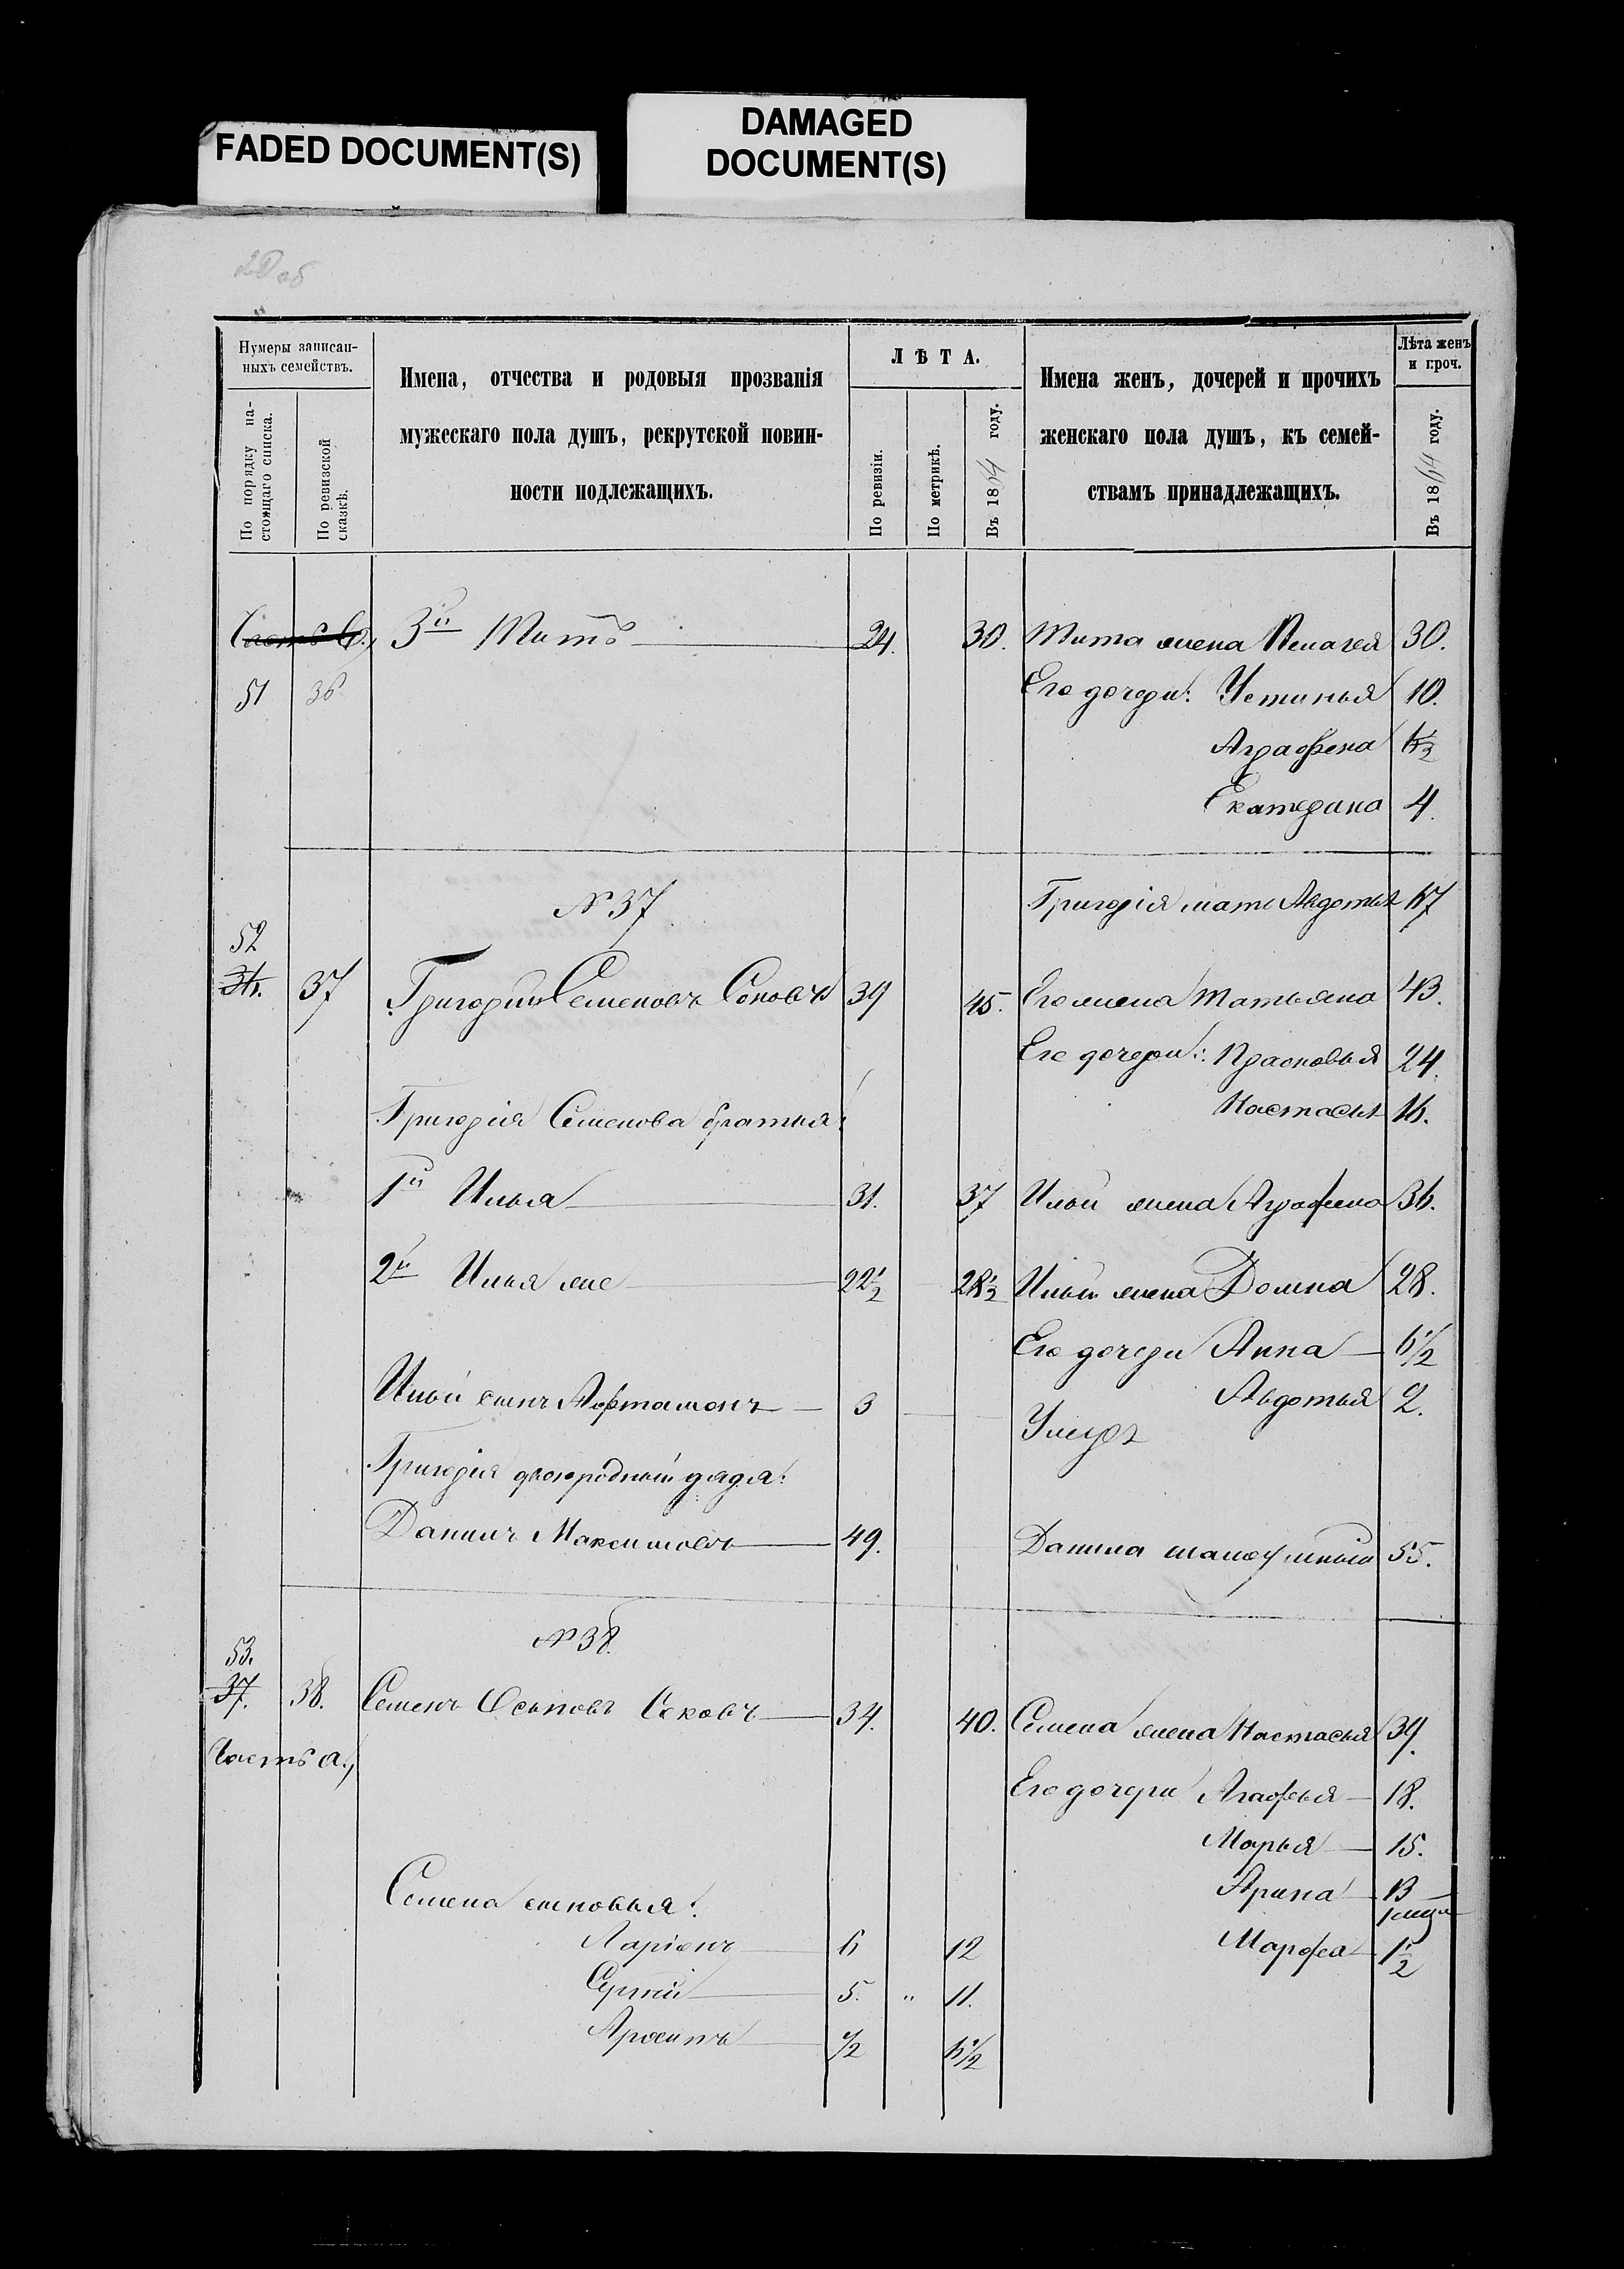 FADED DOCUMENT(S)
DAMAGED
DOCUMENT(S)
Нумеры записан-
ныхъ семействъ.
По порядку на-
стоящаго списка.
По ревизской
сказкѣ.
Имена, отчества и родовыя прозванія
мужескаго пола душъ, рекрутской повин-
ности подлежащихъ.
ЛѢТА.
По ревизіи.
По метрикѣ.
Въ 18 году.
Имена женъ, дочерей и прочихъ
женскаго пола душъ, къ семей-
ствамъ принадлежащихъ.
Лѣта женъ
и проч.
Въ 18 году.
3й Титъ 24. 30. Тита жена Пелагея 30.
51 36 Его дочери: Устинья 10.
Аграфена
Екатерина 4.
№ 37 Григорія мать Авдотья 67
52
36. 37 Григорий Семеновъ 39 45. Его жена Татьяна 43.
Его дочери: Прасковья 24.
Григорія Семенова братья: Настасья 16.
1й Илья 31. 37 Ильи жена Аграфена 36.
2й Илья же 22½ 28½ Ильи жена Домна 28.
Его дочери Анна 6½
Ильи сынъ 3 Авдотья 2.
Умеръ
Григорія двоюродный дядя:
Данилъ Максимовъ 49. Данила 55.
№ 38.
53.
37. 38. Семенъ Осиповъ 34. 40. Семена жена Настасья 39.
Часть а.)
Его дочери Агафья 18.
Марья 15.
Семена сыновья: Арина 13
Ларіонъ 6 12 Марфа 1½
Сергѣй 5. " 11.
½ 6½